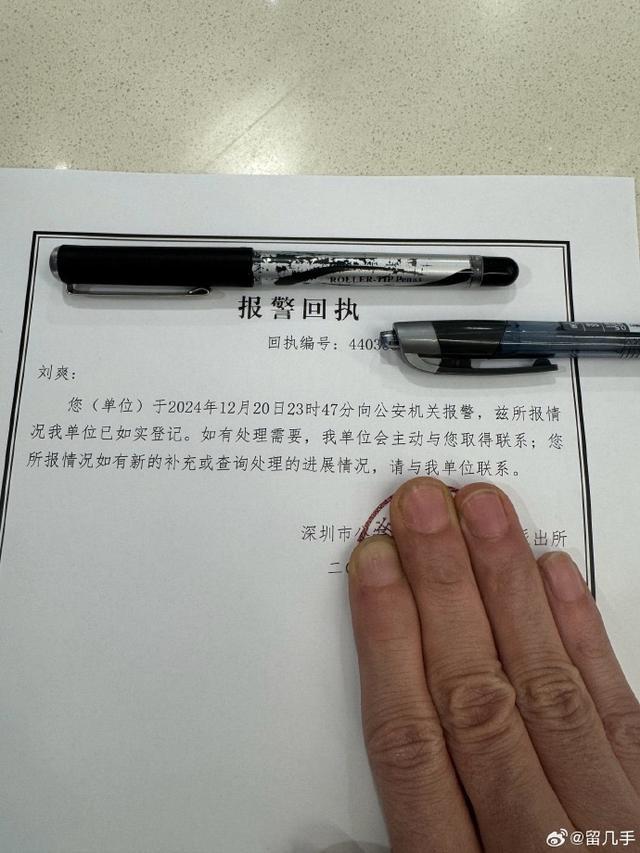 ROLLER-TIP Pen
报警回执
回执编号：4403
刘爽：
您（单位）于2024年12月20日23时47分向公安机关报警，兹所报情
况我单位已如实登记。如有处理需要，我单位会主动与您取得联系；您
所报情况如有新的补充或查询处理的进展情况，请与我单位联系。
深圳市公 出所
二〇
@留几手